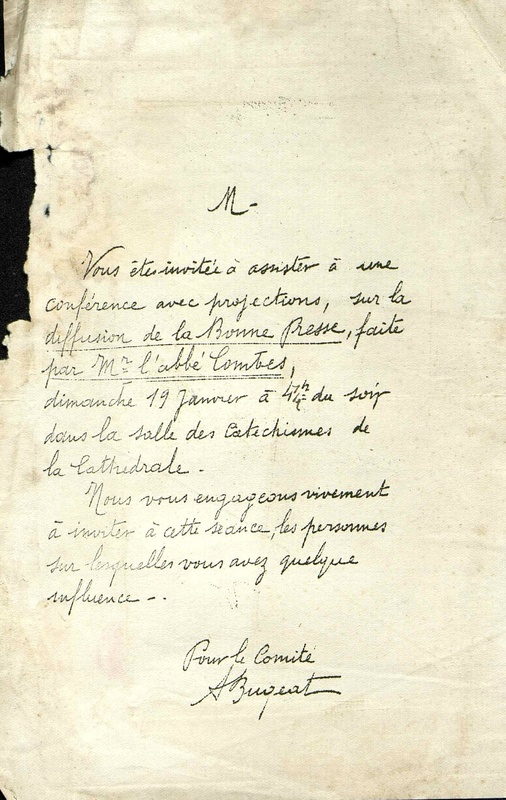 M-
Vous êtes invitée à assister à une
conférence avec projections, sur la
diffusion de la Bonne Presse, faite
par Mr l'abbé Combes,
dimanche 19 Janvier à 4h du soir
dans la salle des Catéchismes de
la Cathédrale.
Nous vous engageons vivement
à inviter à cette séance, les personnes
sur lesquelles vous avez quelque
influence -.
Pour le Comité
A Bugeat